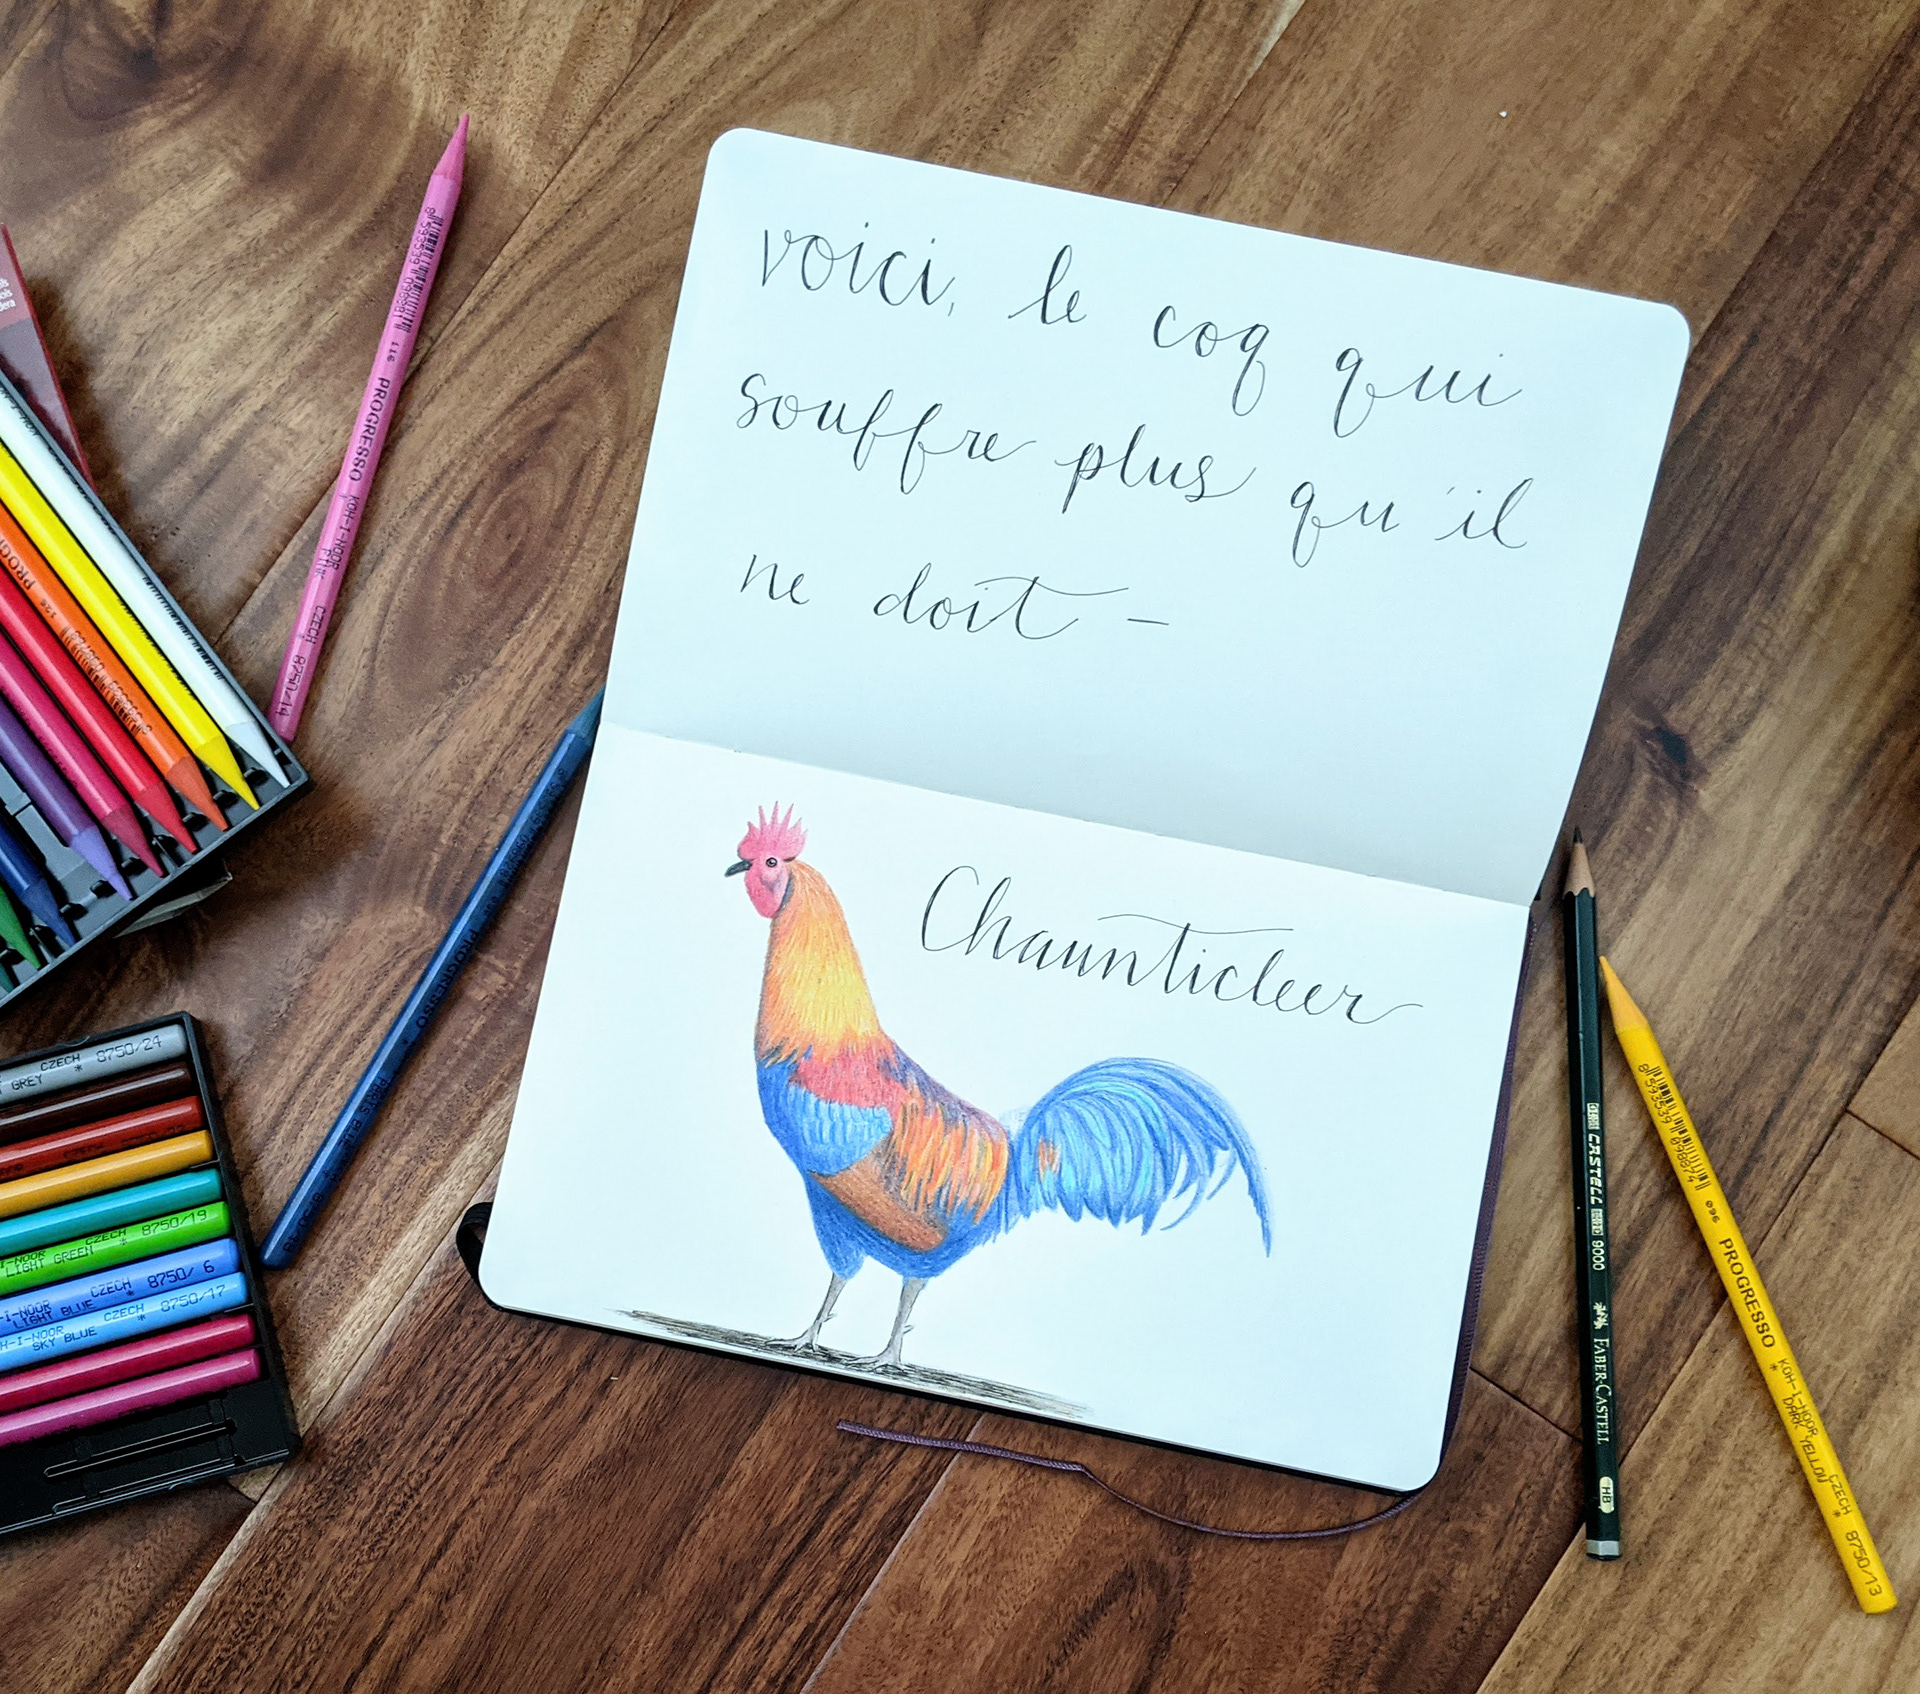 voici, le coq qui
souffre plus qu'il
ne doit –
Chaunticleer
8 593539 098881
116 PROGRESSO KOH-I-NOOR
PINK CZECH 8750/14
PROGRESSO
CZECH 8750/24
GREY
8750/19
LIGHT GREEN
CZECH 8750/6
LIGHT BLUE
CZECH 8750/17
SKY BLUE
CASTELL 9000 FABER-CASTELL HB
8 593539 098874
096 PROGRESSO KOH-I-NOOR
DARK YELLOW CZECH 8750/13